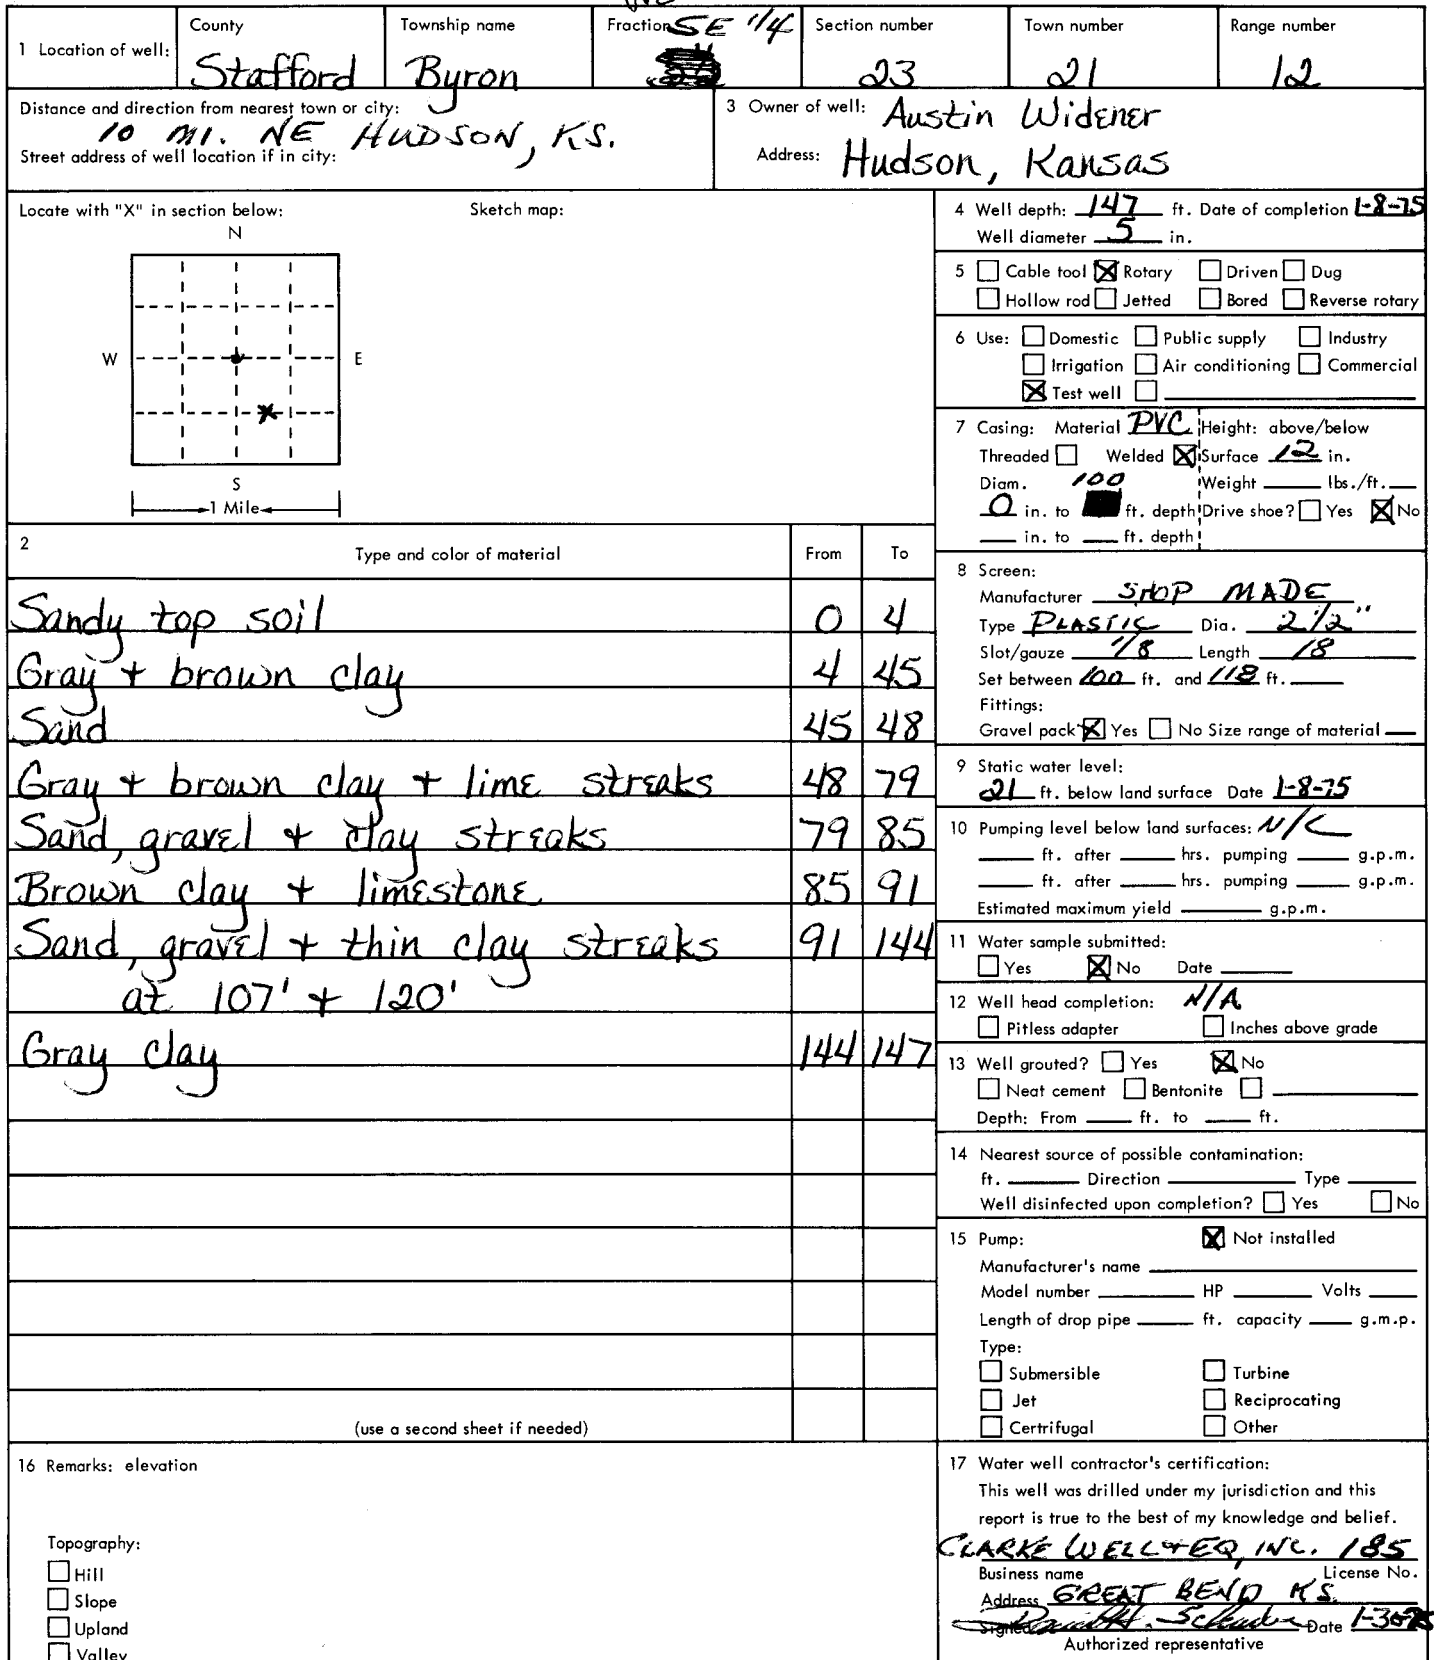 County Township name Fraction SE 1/4 Section number Town number Range number
1 Location of well: Stafford Byron 23 21 12
Distance and direction from nearest town or city:
10 MI. NE HUDSON, KS.
Street address of well location if in city:
3 Owner of well: Austin Widener
Address: Hudson, Kansas
Locate with "X" in section below: Sketch map:
N
W E
S
1 Mile
2 Type and color of material From To
Sandy top soil 0 4
Gray + brown clay 4 45
Sand 45 48
Gray + brown clay + lime streaks 48 79
Sand, gravel + clay streaks 79 85
Brown clay + limestone 85 91
Sand, gravel + thin clay streaks 91 144
at 107' + 120'
Gray clay 144 147
(use a second sheet if needed)
4 Well depth: 147 ft. Date of completion 1-8-75
Well diameter 5 in.
5 Cable tool Rotary Driven Dug
Hollow rod Jetted Bored Reverse rotary
6 Use: Domestic Public supply Industry
Irrigation Air conditioning Commercial
Test well
7 Casing: Material PVC Height: above/below
Threaded Welded Surface 12 in.
Diam. 100 Weight lbs./ft.
0 in. to ft. depth Drive shoe? Yes No
in. to ft. depth
8 Screen:
Manufacturer SHOP MADE
Type PLASTIC Dia. 2 1/2"
Slot/gauze 1/8 Length 18
Set between 100 ft. and 118 ft.
Fittings:
Gravel pack Yes No Size range of material
9 Static water level:
21 ft. below land surface Date 1-8-75
10 Pumping level below land surfaces: N/C
ft. after hrs. pumping g.p.m.
ft. after hrs. pumping g.p.m.
Estimated maximum yield g.p.m.
11 Water sample submitted:
Yes No Date
12 Well head completion: N/A
Pitless adapter Inches above grade
13 Well grouted? Yes No
Neat cement Bentonite
Depth: From ft. to ft.
14 Nearest source of possible contamination:
ft. Direction Type
Well disinfected upon completion? Yes No
15 Pump: Not installed
Manufacturer's name
Model number HP Volts
Length of drop pipe ft. capacity g.m.p.
Type:
Submersible Turbine
Jet Reciprocating
Certrifugal Other
16 Remarks: elevation
Topography:
Hill
Slope
Upland
Valley
17 Water well contractor's certification:
This well was drilled under my jurisdiction and this
report is true to the best of my knowledge and belief.
CLARKE WELL + EQ, INC. 185
Business name License No.
Address GREAT BEND KS.
Signed Date
Authorized representative